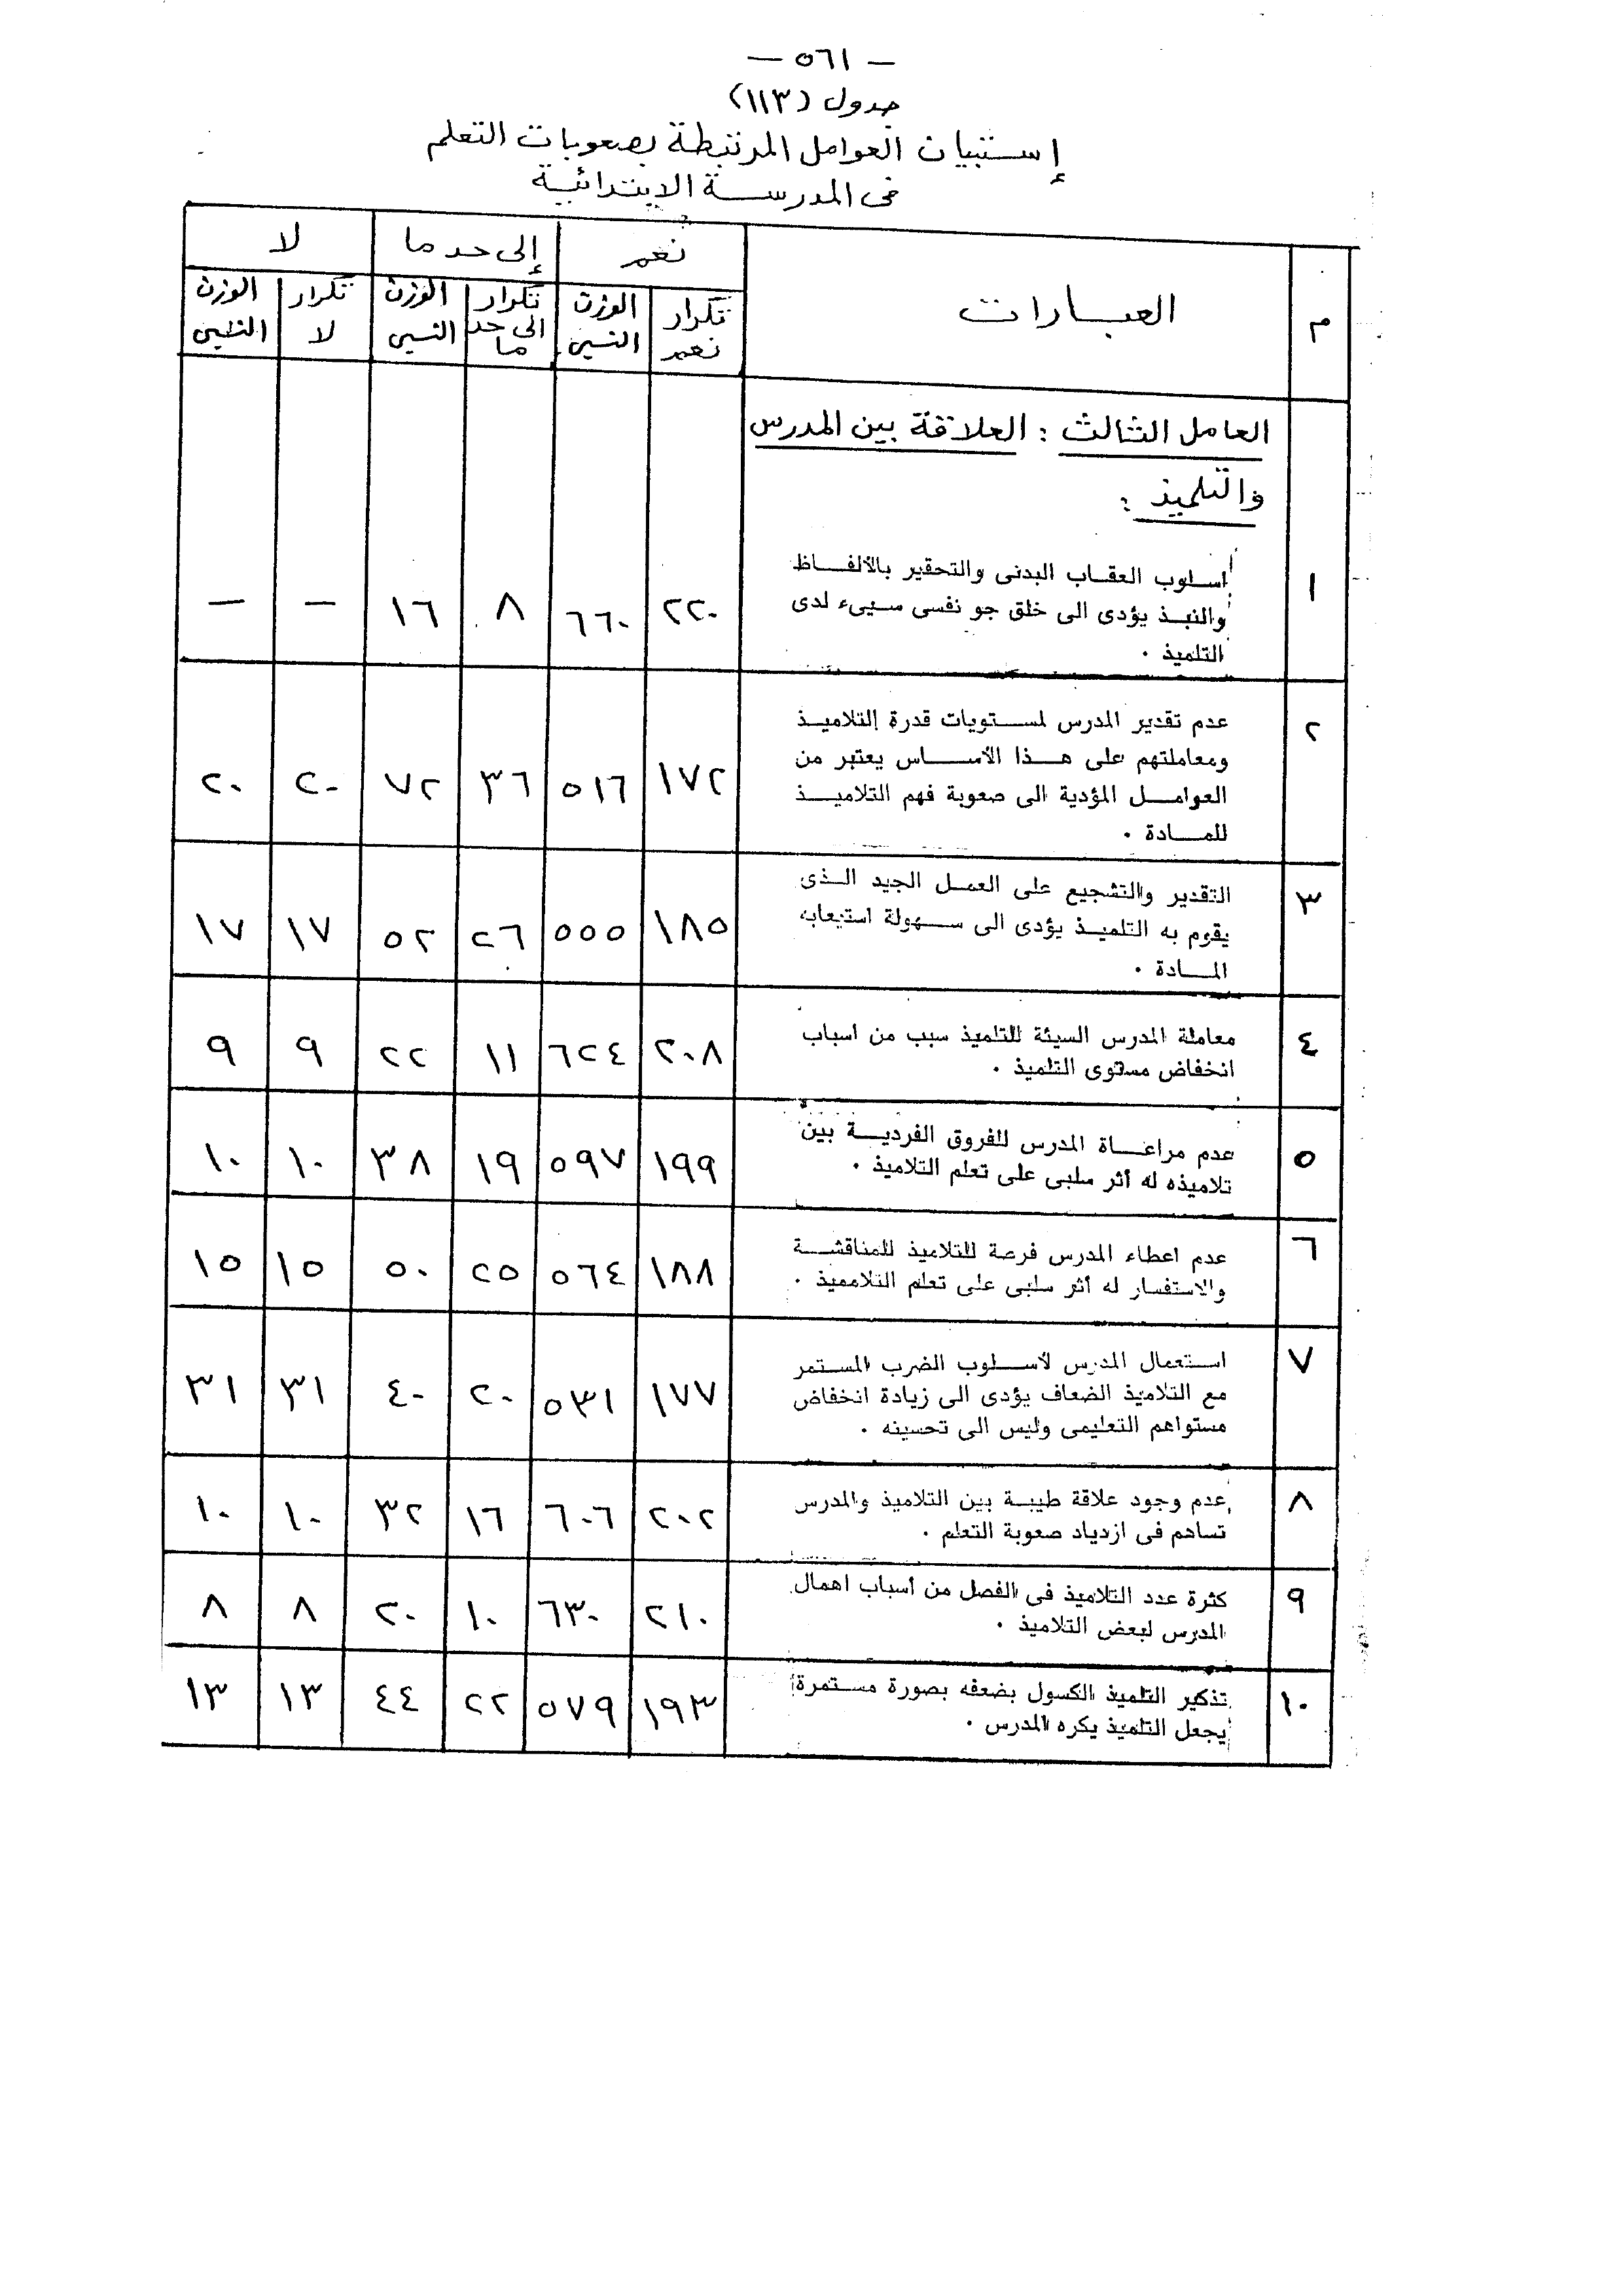 — ٥٦١ —
جدول (١١٣)
إستبيان العوامل المرتبطة بصعوبات التعلم
فى المدرسة الإبتدائية
م العبارات نعم إلى حد ما لا
تكرار نعم الوزن النسبى تكرار الى حد ما الوزن النسبى تكرار لا الوزن النسبى
العامل الثالث : العلاقة بين المدرس
والتلميذ :
١ اسلوب العقاب البدنى والتحقير بالألفاظ
والنبذ يؤدى الى خلق جو نفسى سيىء لدى
التلميذ .
٢٢٠ ٦٦٠ ٨ ١٦ — —
٢ عدم تقدير المدرس لمستويات قدرة التلاميذ
ومعاملتهم على هذا الأساس يعتبر من
العوامل المؤدية الى صعوبة فهم التلاميذ
للمادة .
١٧٢ ٥١٦ ٣٦ ٧٢ ٢٠ ٢٠
٣ التقدير والتشجيع على العمل الجيد الذى
يقوم به التلميذ يؤدى الى سهولة استيعابه
المادة .
١٨٥ ٥٥٥ ٢٦ ٥٢ ١٧ ١٧
٤ معاملة المدرس السيئة للتلميذ سبب من اسباب
انخفاض مستوى التلميذ .
٢٠٨ ٦٢٤ ١١ ٢٢ ٩ ٩
٥ عدم مراعاة المدرس للفروق الفردية بين
تلاميذه له أثر سلبى على تعلم التلاميذ .
١٩٩ ٥٩٧ ١٩ ٣٨ ١٠ ١٠
٦ عدم اعطاء المدرس فرصة للتلاميذ للمناقشة
والاستفسار له أثر سلبى على تعلم التلامميذ .
١٨٨ ٥٦٤ ٢٥ ٥٠ ١٥ ١٥
٧ استعمال المدرس لأسلوب الضرب المستمر
مع التلاميذ الضعاف يؤدى الى زيادة انخفاض
مستواهم التعليمى وليس الى تحسينه .
١٧٧ ٥٣١ ٢٠ ٤٠ ٣١ ٣١
٨ عدم وجود علاقة طيبة بين التلاميذ والمدرس
تساهم فى ازدياد صعوبة التعلم .
٢٠٢ ٦٠٦ ١٦ ٣٢ ١٠ ١٠
٩ كثرة عدد التلاميذ فى الفصل من أسباب اهمال
المدرس لبعض التلاميذ .
٢١٠ ٦٣٠ ١٠ ٢٠ ٨ ٨
١٠ تذكير التلميذ الكسول بضعفه بصورة مستمرة
يجعل التلميذ يكره المدرس .
١٩٣ ٥٧٩ ٢٢ ٤٤ ١٣ ١٣